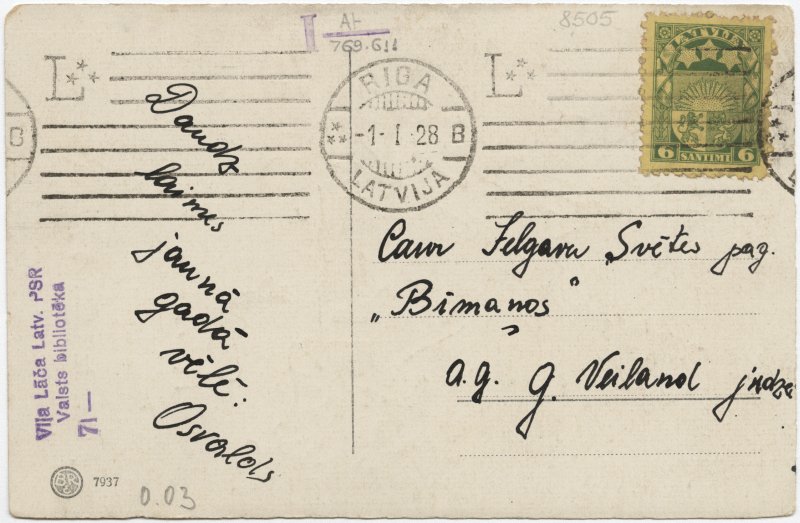 I AI-
769.611
8505
L
RIGA
-1- I 28 B
LATVIJA
L
B
LATVIJA
6 SANTIMI 6
Daudz
laimes
jaunā
gadā
vēlē:
Osvalds
Caur Jelgavu, Svētes pag.
"Bīmaņos"
a.g. G. Veiland jndze
Viļa Lāča Latv. PSR
Valsts bibliotēka
71—
7937
0.03